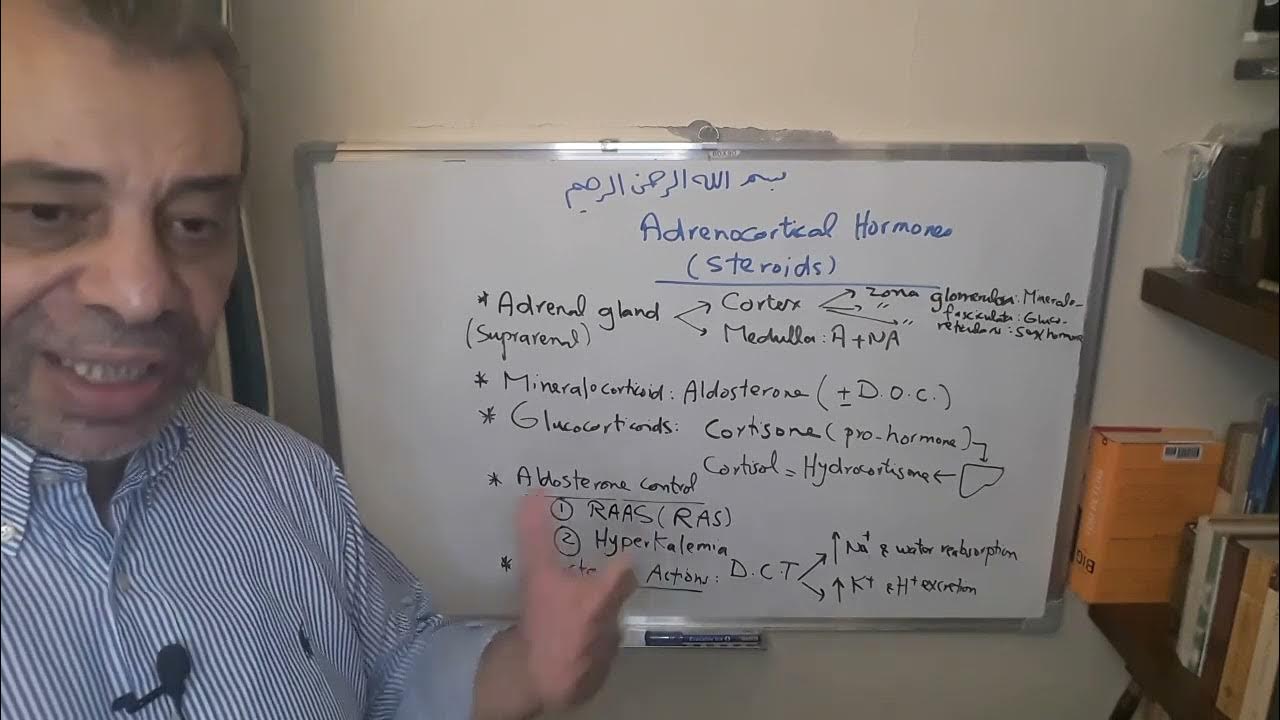 بسم الله الرحمن الرحيم
Adrenocortical Hormones
(Steroids)
* Adrenal gland → Cortex → Zona glomerulosa: Mineralo-
→ " fasciculata: Gluco-
→ " reticularis: Sex hormone
(Suprarenal) → Medulla: A + NA
* Mineralocorticoid: Aldosterone (± D.O.C.)
* Glucocorticoids: Cortisone (pro-hormone)
Cortisol = Hydrocortisone ←
* Aldosterone control
① RAAS (RAS)
② Hyperkalemia
* Actions: D.C.T → ↑ Na+ & water reabsorption
→ ↑ K+ & H+ excretion